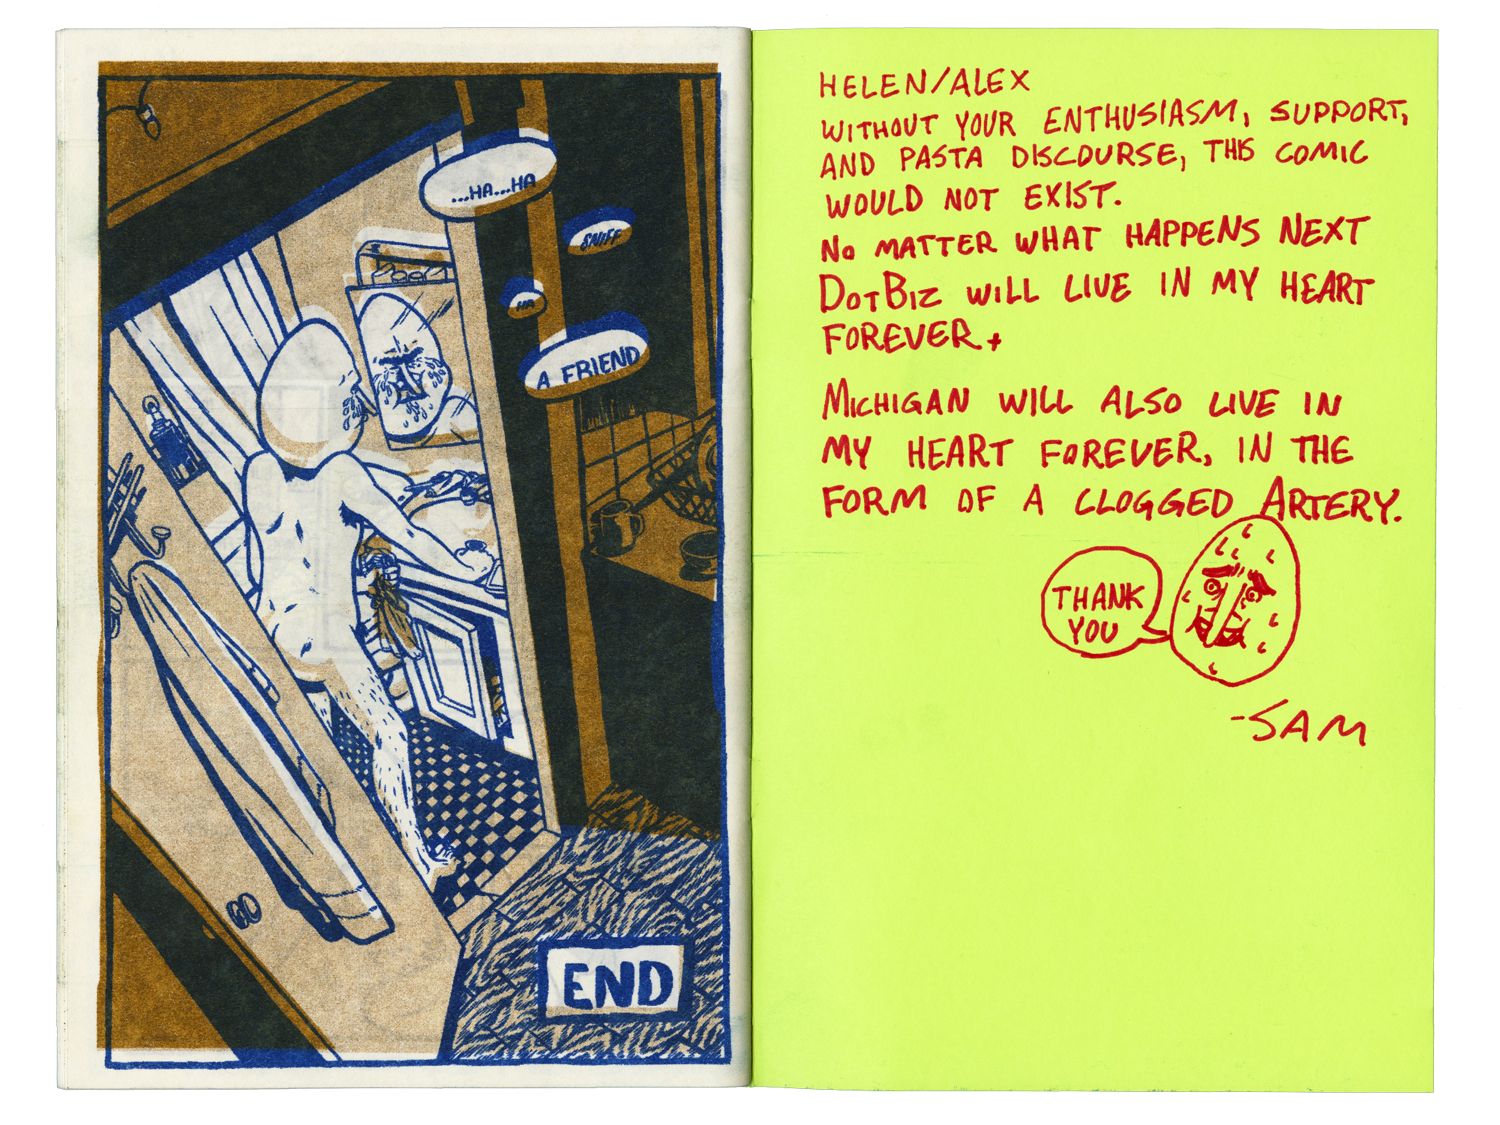 ...HA...HA
SNIFF
HA
A FRIEND
END
HELEN/ALEX
WITHOUT YOUR ENTHUSIASM, SUPPORT,
AND PASTA DISCOURSE, THIS COMIC
WOULD NOT EXIST.
NO MATTER WHAT HAPPENS NEXT
DOTBIZ WILL LIVE IN MY HEART
FOREVER +
MICHIGAN WILL ALSO LIVE IN
MY HEART FOREVER, IN THE
FORM OF A CLOGGED ARTERY.
THANK
YOU
-SAM